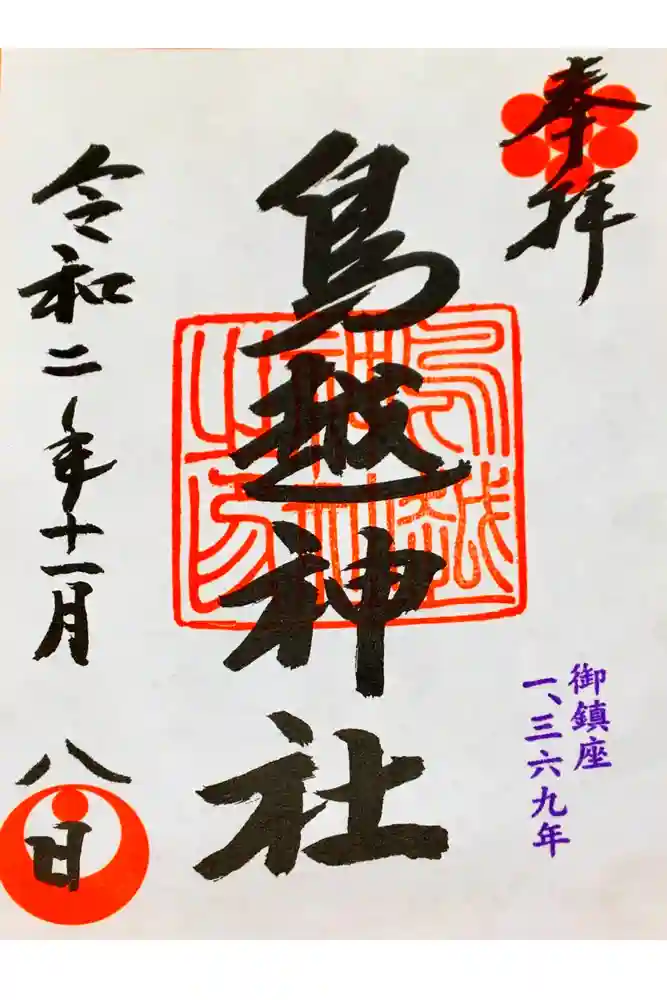 奉拝
鳥越神社
鳥越神社之印
令和二年十一月八日
御鎮座
一、三六九年